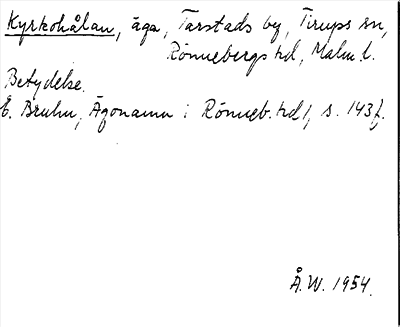 Kyrkohålan, äga, Tarstads by, Tirups sn,
Rönnebergs hd, Malm. l.
Betydelse.
E. Bruhn, Ägonamn i Rönneb. hd 1, s. 143 f.
Å.W. 1954.